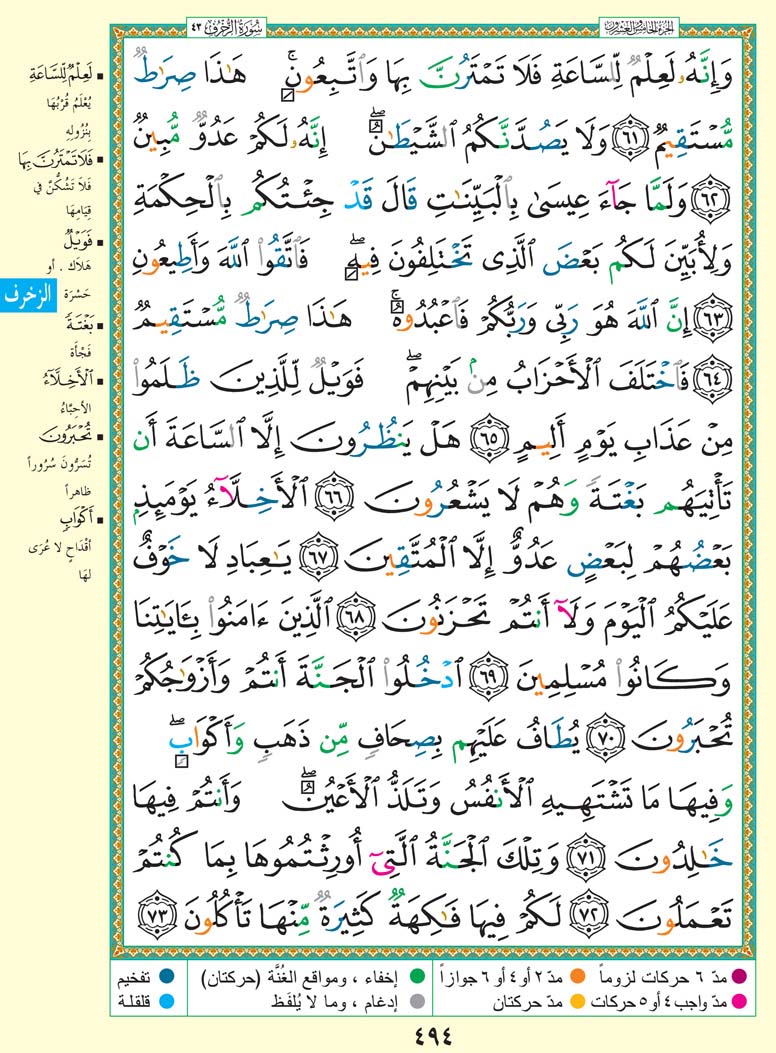 الجزء الخامس والعشرون
سورة الزخرف ٤٣
وَإِنَّهُۥ لَعِلْمٌ لِّلسَّاعَةِ فَلَا تَمْتَرُنَّ بِهَا وَٱتَّبِعُونِ ۚ هَٰذَا صِرَٰطٌ
مُّسْتَقِيمٌ ﴿٦١﴾ وَلَا يَصُدَّنَّكُمُ ٱلشَّيْطَٰنُ ۖ إِنَّهُۥ لَكُمْ عَدُوٌّ مُّبِينٌ
﴿٦٢﴾ وَلَمَّا جَآءَ عِيسَىٰ بِٱلْبَيِّنَٰتِ قَالَ قَدْ جِئْتُكُم بِٱلْحِكْمَةِ
وَلِأُبَيِّنَ لَكُم بَعْضَ ٱلَّذِى تَخْتَلِفُونَ فِيهِ ۖ فَٱتَّقُوا۟ ٱللَّهَ وَأَطِيعُونِ
﴿٦٣﴾ إِنَّ ٱللَّهَ هُوَ رَبِّى وَرَبُّكُمْ فَٱعْبُدُوهُ ۚ هَٰذَا صِرَٰطٌ مُّسْتَقِيمٌ
﴿٦٤﴾ فَٱخْتَلَفَ ٱلْأَحْزَابُ مِنۢ بَيْنِهِمْ ۖ فَوَيْلٌ لِّلَّذِينَ ظَلَمُوا۟
مِنْ عَذَابِ يَوْمٍ أَلِيمٍ ﴿٦٥﴾ هَلْ يَنظُرُونَ إِلَّا ٱلسَّاعَةَ أَن
تَأْتِيَهُم بَغْتَةً وَهُمْ لَا يَشْعُرُونَ ﴿٦٦﴾ ٱلْأَخِلَّآءُ يَوْمَئِذٍۭ
بَعْضُهُمْ لِبَعْضٍ عَدُوٌّ إِلَّا ٱلْمُتَّقِينَ ﴿٦٧﴾ يَٰعِبَادِ لَا خَوْفٌ
عَلَيْكُمُ ٱلْيَوْمَ وَلَآ أَنتُمْ تَحْزَنُونَ ﴿٦٨﴾ ٱلَّذِينَ ءَامَنُوا۟ بِـَٔايَٰتِنَا
وَكَانُوا۟ مُسْلِمِينَ ﴿٦٩﴾ ٱدْخُلُوا۟ ٱلْجَنَّةَ أَنتُمْ وَأَزْوَٰجُكُمْ
تُحْبَرُونَ ﴿٧٠﴾ يُطَافُ عَلَيْهِم بِصِحَافٍ مِّن ذَهَبٍ وَأَكْوَابٍ ۖ
وَفِيهَا مَا تَشْتَهِيهِ ٱلْأَنفُسُ وَتَلَذُّ ٱلْأَعْيُنُ ۖ وَأَنتُمْ فِيهَا
خَٰلِدُونَ ﴿٧١﴾ وَتِلْكَ ٱلْجَنَّةُ ٱلَّتِىٓ أُورِثْتُمُوهَا بِمَا كُنتُمْ
تَعْمَلُونَ ﴿٧٢﴾ لَكُمْ فِيهَا فَٰكِهَةٌ كَثِيرَةٌ مِّنْهَا تَأْكُلُونَ ﴿٧٣﴾
▪ لَعِلْمٌ لِّلسَّاعَةِ
يُعْلَمُ قُرْبُهَا
بِنُزُولِهِ
▪ فَلَا تَمْتَرُنَّ بِهَا
فَلَا تَشُكُّنَّ في
قِيَامِهَا
▪ فَوَيْلٌ
هَلَاك . أو
حَسْرَة
▪ بَغْتَةً
فَجْأَة
▪ ٱلْأَخِلَّآءُ
الأحِبَّاءُ
▪ تُحْبَرُونَ
تُسَرُّونَ سُرُوراً
ظاهراً
▪ أَكْوَابٍ
أقْدَاحٍ لا عُرَى
لهَا
الزخرف
مدّ ٦ حركات لزوماً
مدّ ٢ أو ٤ أو ٦ جوازاً
إخفاء ، ومواقع الغُنَّة (حركتان)
تفخيم
مدّ واجب ٤ أو ٥ حركات
مدّ حركتان
إدغام ، وما لا يُلفَظ
قلقلة
٤٩٤